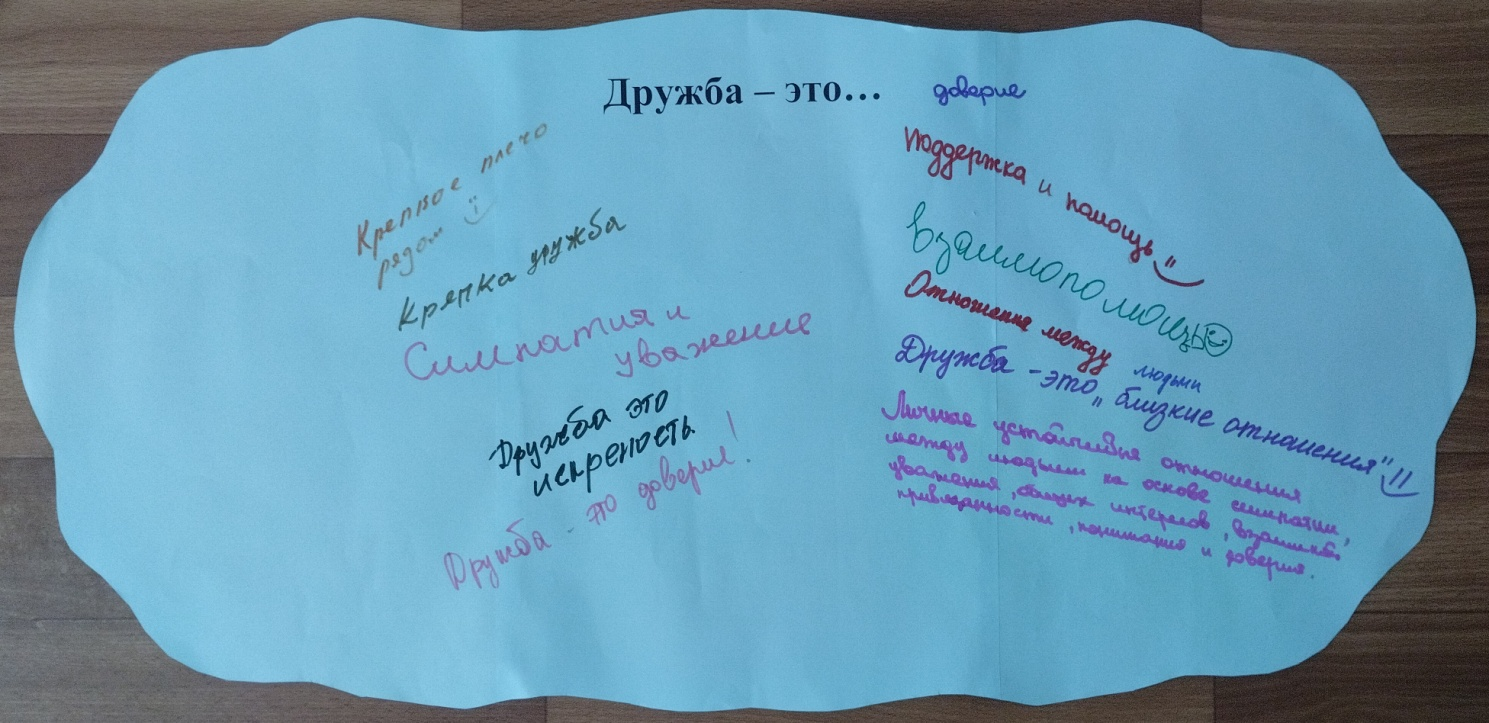 Дружба – это...
доверие
Крепкое плечо
рядом
Крепка дружба
Симпатия и
уважение
Дружба это
искреность
Дружба - это доверие!
Поддержка и помощь
Взаимопомощь
Отношение между
людьми
Дружба - это „близкие отношения"
Личные устойчивые отношения
между людьми на основе симпатии,
уважения, общих интересов, взаимной
привязанности, понимания и доверия.